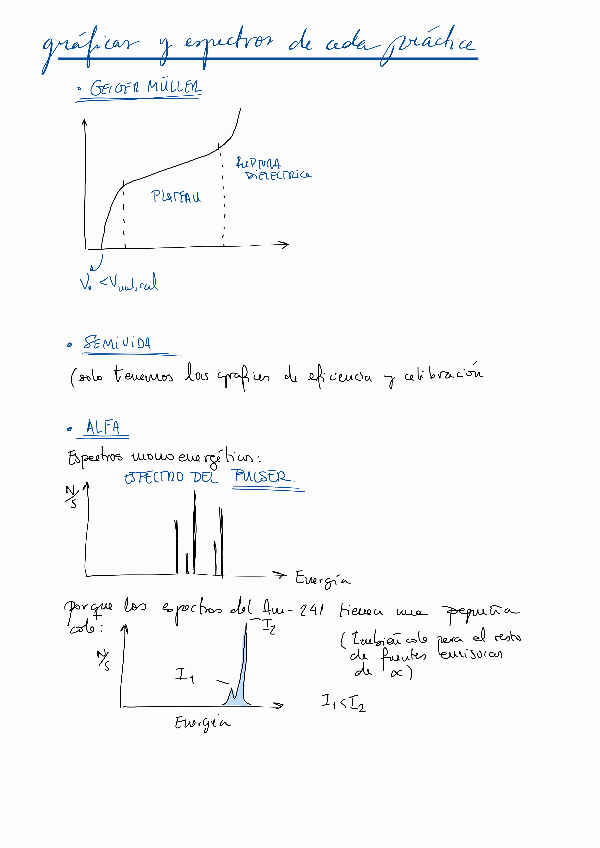 gráficas y espectros de cada práctica
• GEIGER MÜLLER
RUPTURA
DIELECTRICA
PLATEAU
V₀ < Vumbral
• SEMIVIDA
(solo tenemos las gráficas de eficiencia y calibración
• ALFA
Espectros monoenergéticos:
ESPECTRO DEL PULSER.
N/S
Energía
porque los espectros del Am-241 tienen una pequeña
cola:
I₂
(También cola para el resto
de fuentes emisoras
de α)
N/S
I₁
I₁<I₂
Energía